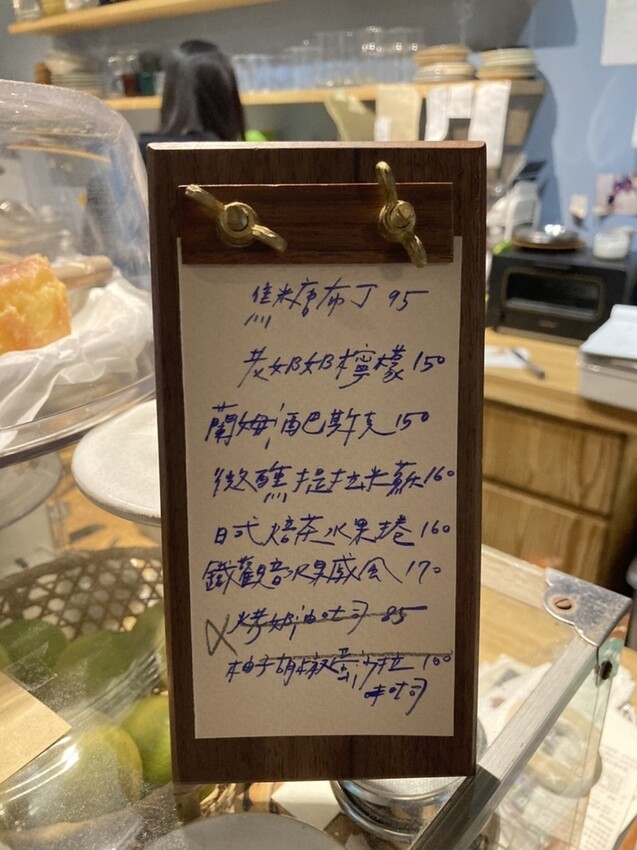 焦糖布丁 95
老奶奶檸檬 150
蘭姆酒巴斯克 150
微醺提拉米蘇 160
日式焙茶水果捲 160
鐵觀音水果戚風 170
烤奶油吐司 85
柚子胡椒蛋沙拉 100
吐司